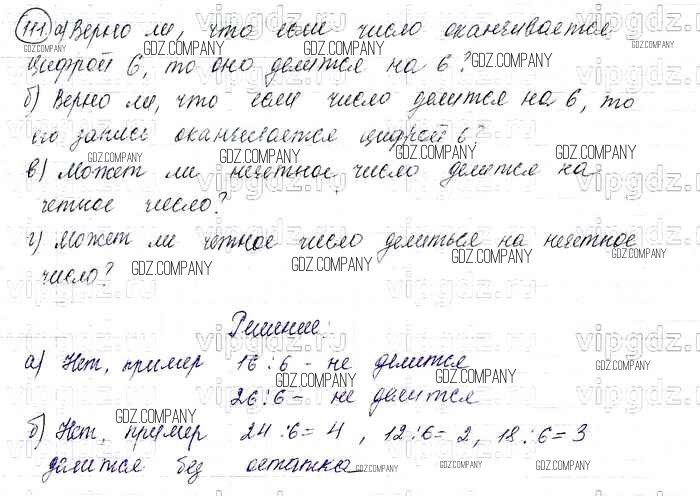 111. а) Верно ли, что если число оканчивается
цифрой 6, то оно делится на 6?
б) Верно ли, что если число делится на 6, то
его запись оканчивается цифрой 6?
в) Может ли нечетное число делится на
четное число?
г) Может ли четное число делиться на нечетное
число?
Решение:
а) Нет, пример 16:6 - не делится
26:6 - не делится
б) Нет, пример 24:6=4, 12:6=2, 18:6=3
делится без остатка
GDZ.COMPANY
vipgdz.ru